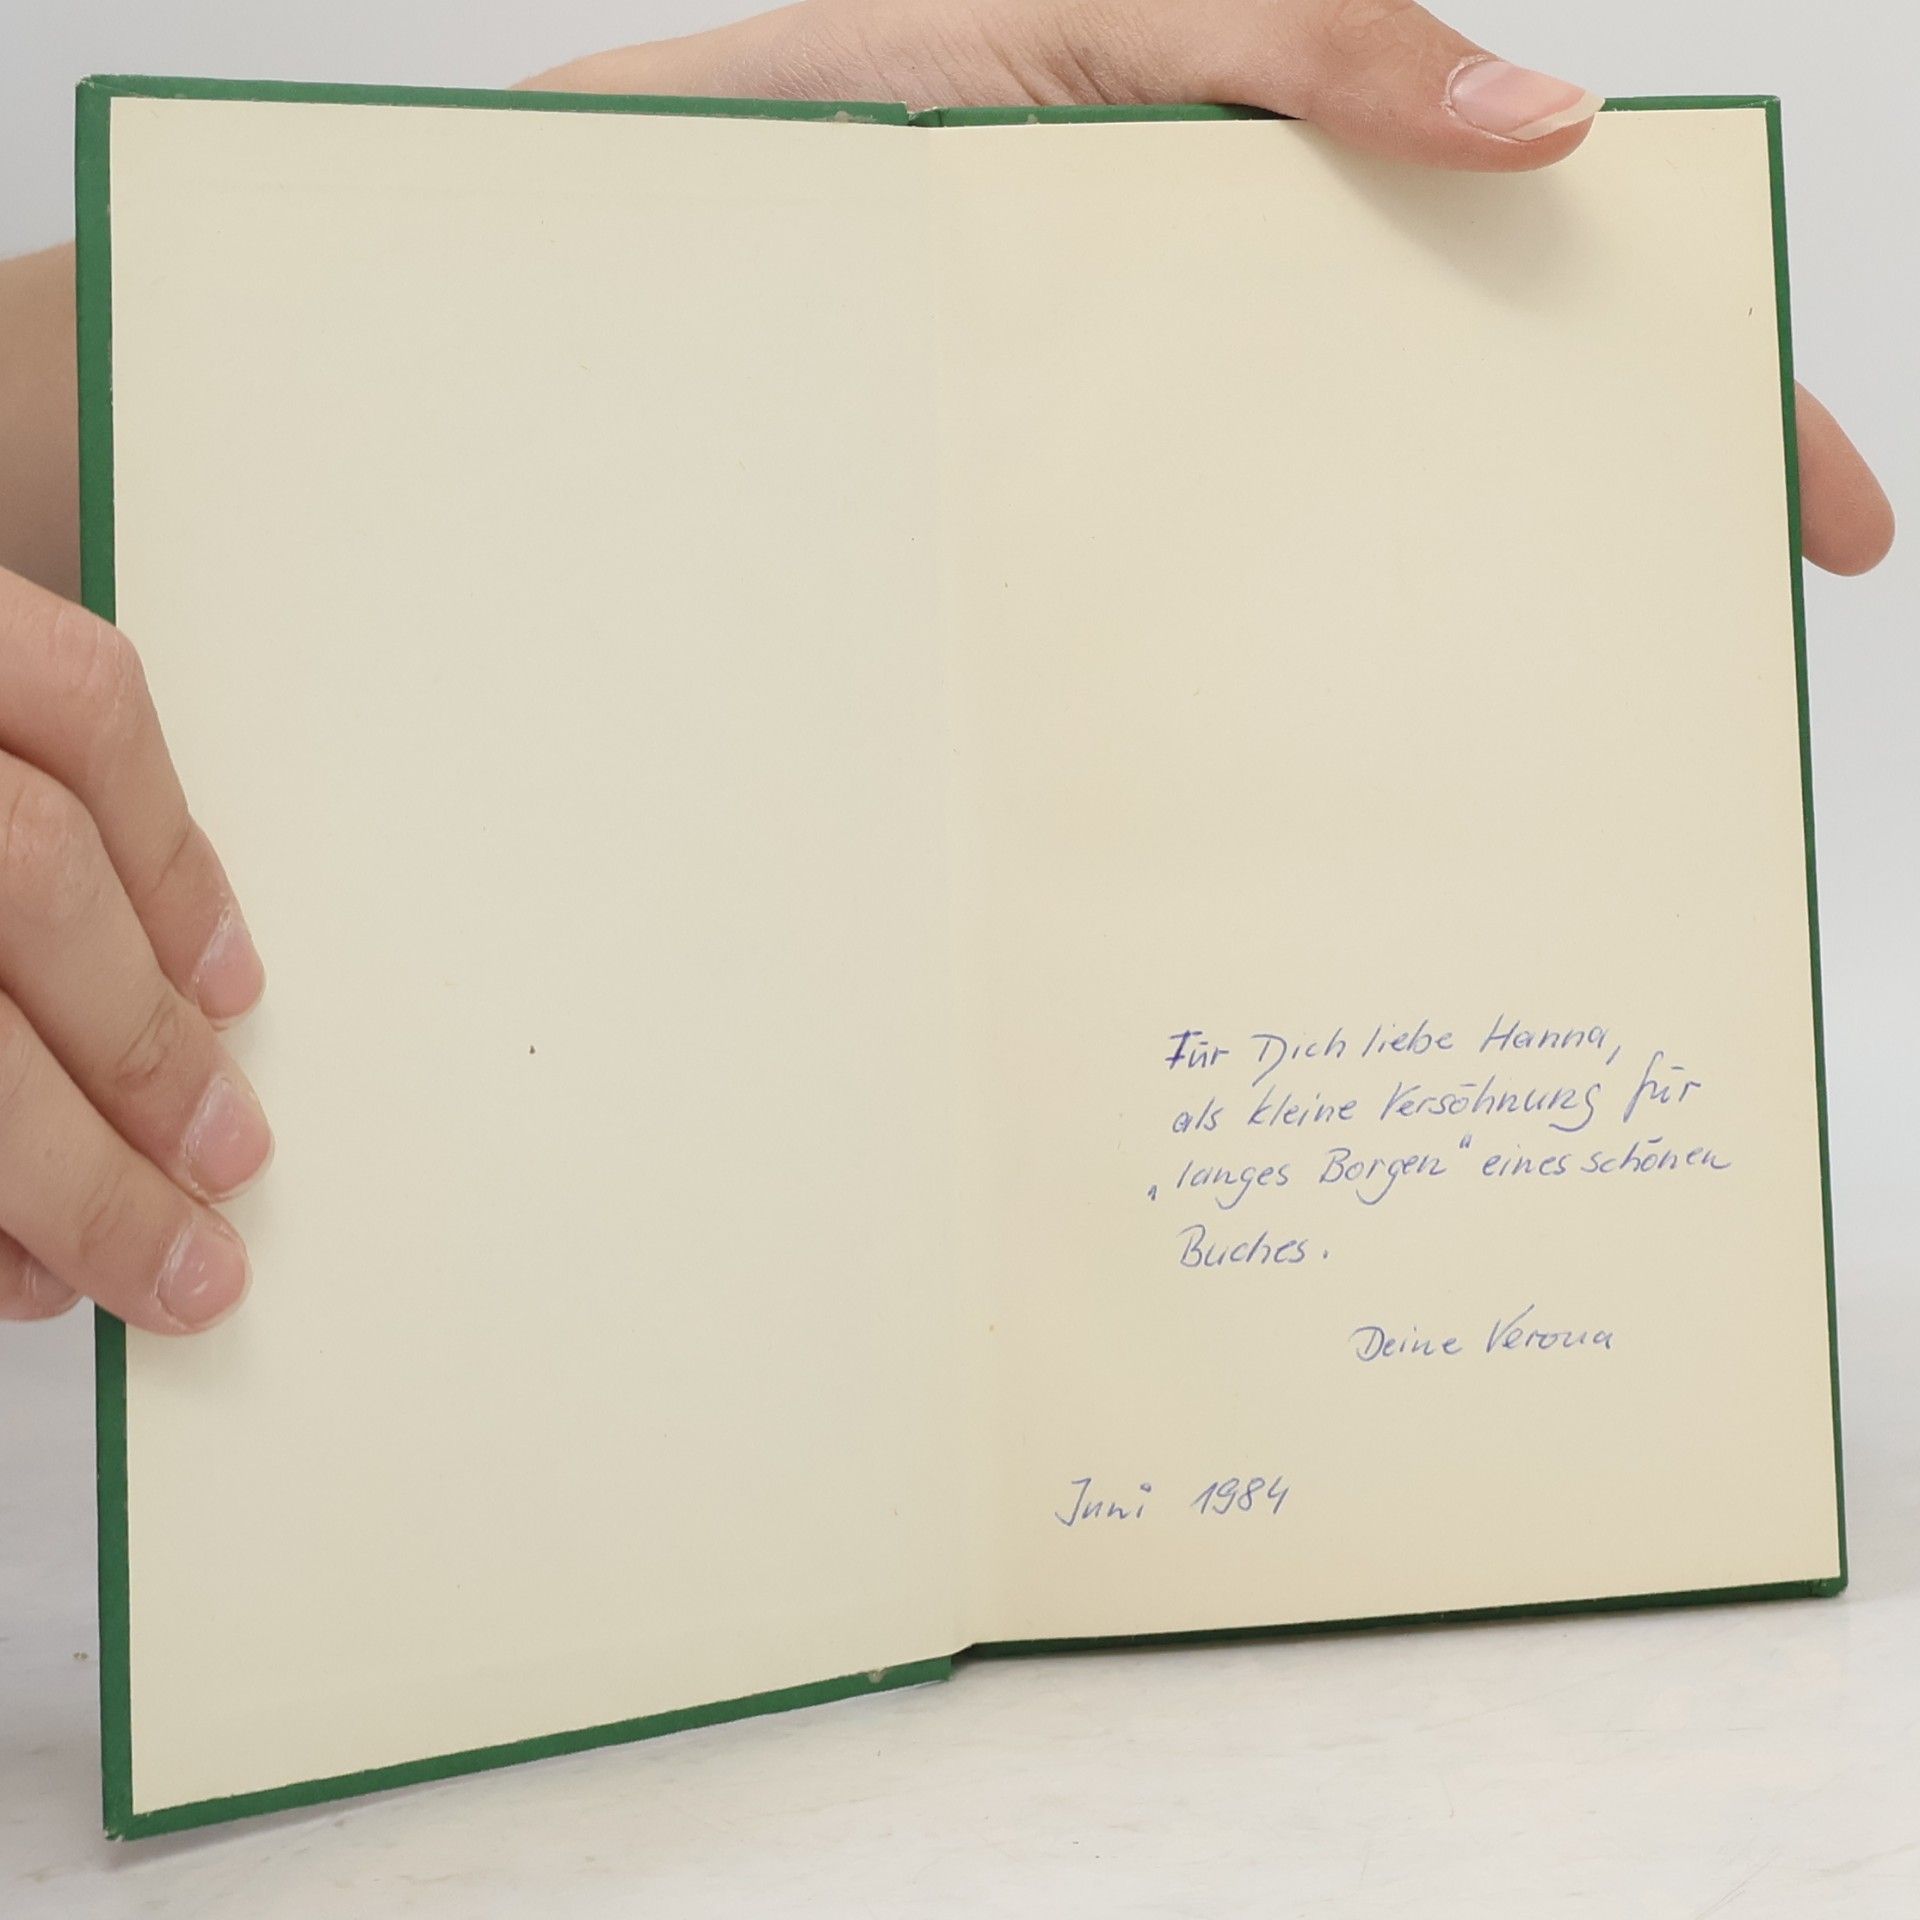 Für Dich liebe Hanna,
als kleine Versöhnung für
„langes Borgen“ eines schönen
Buches.
Deine Verona
Juni 1984